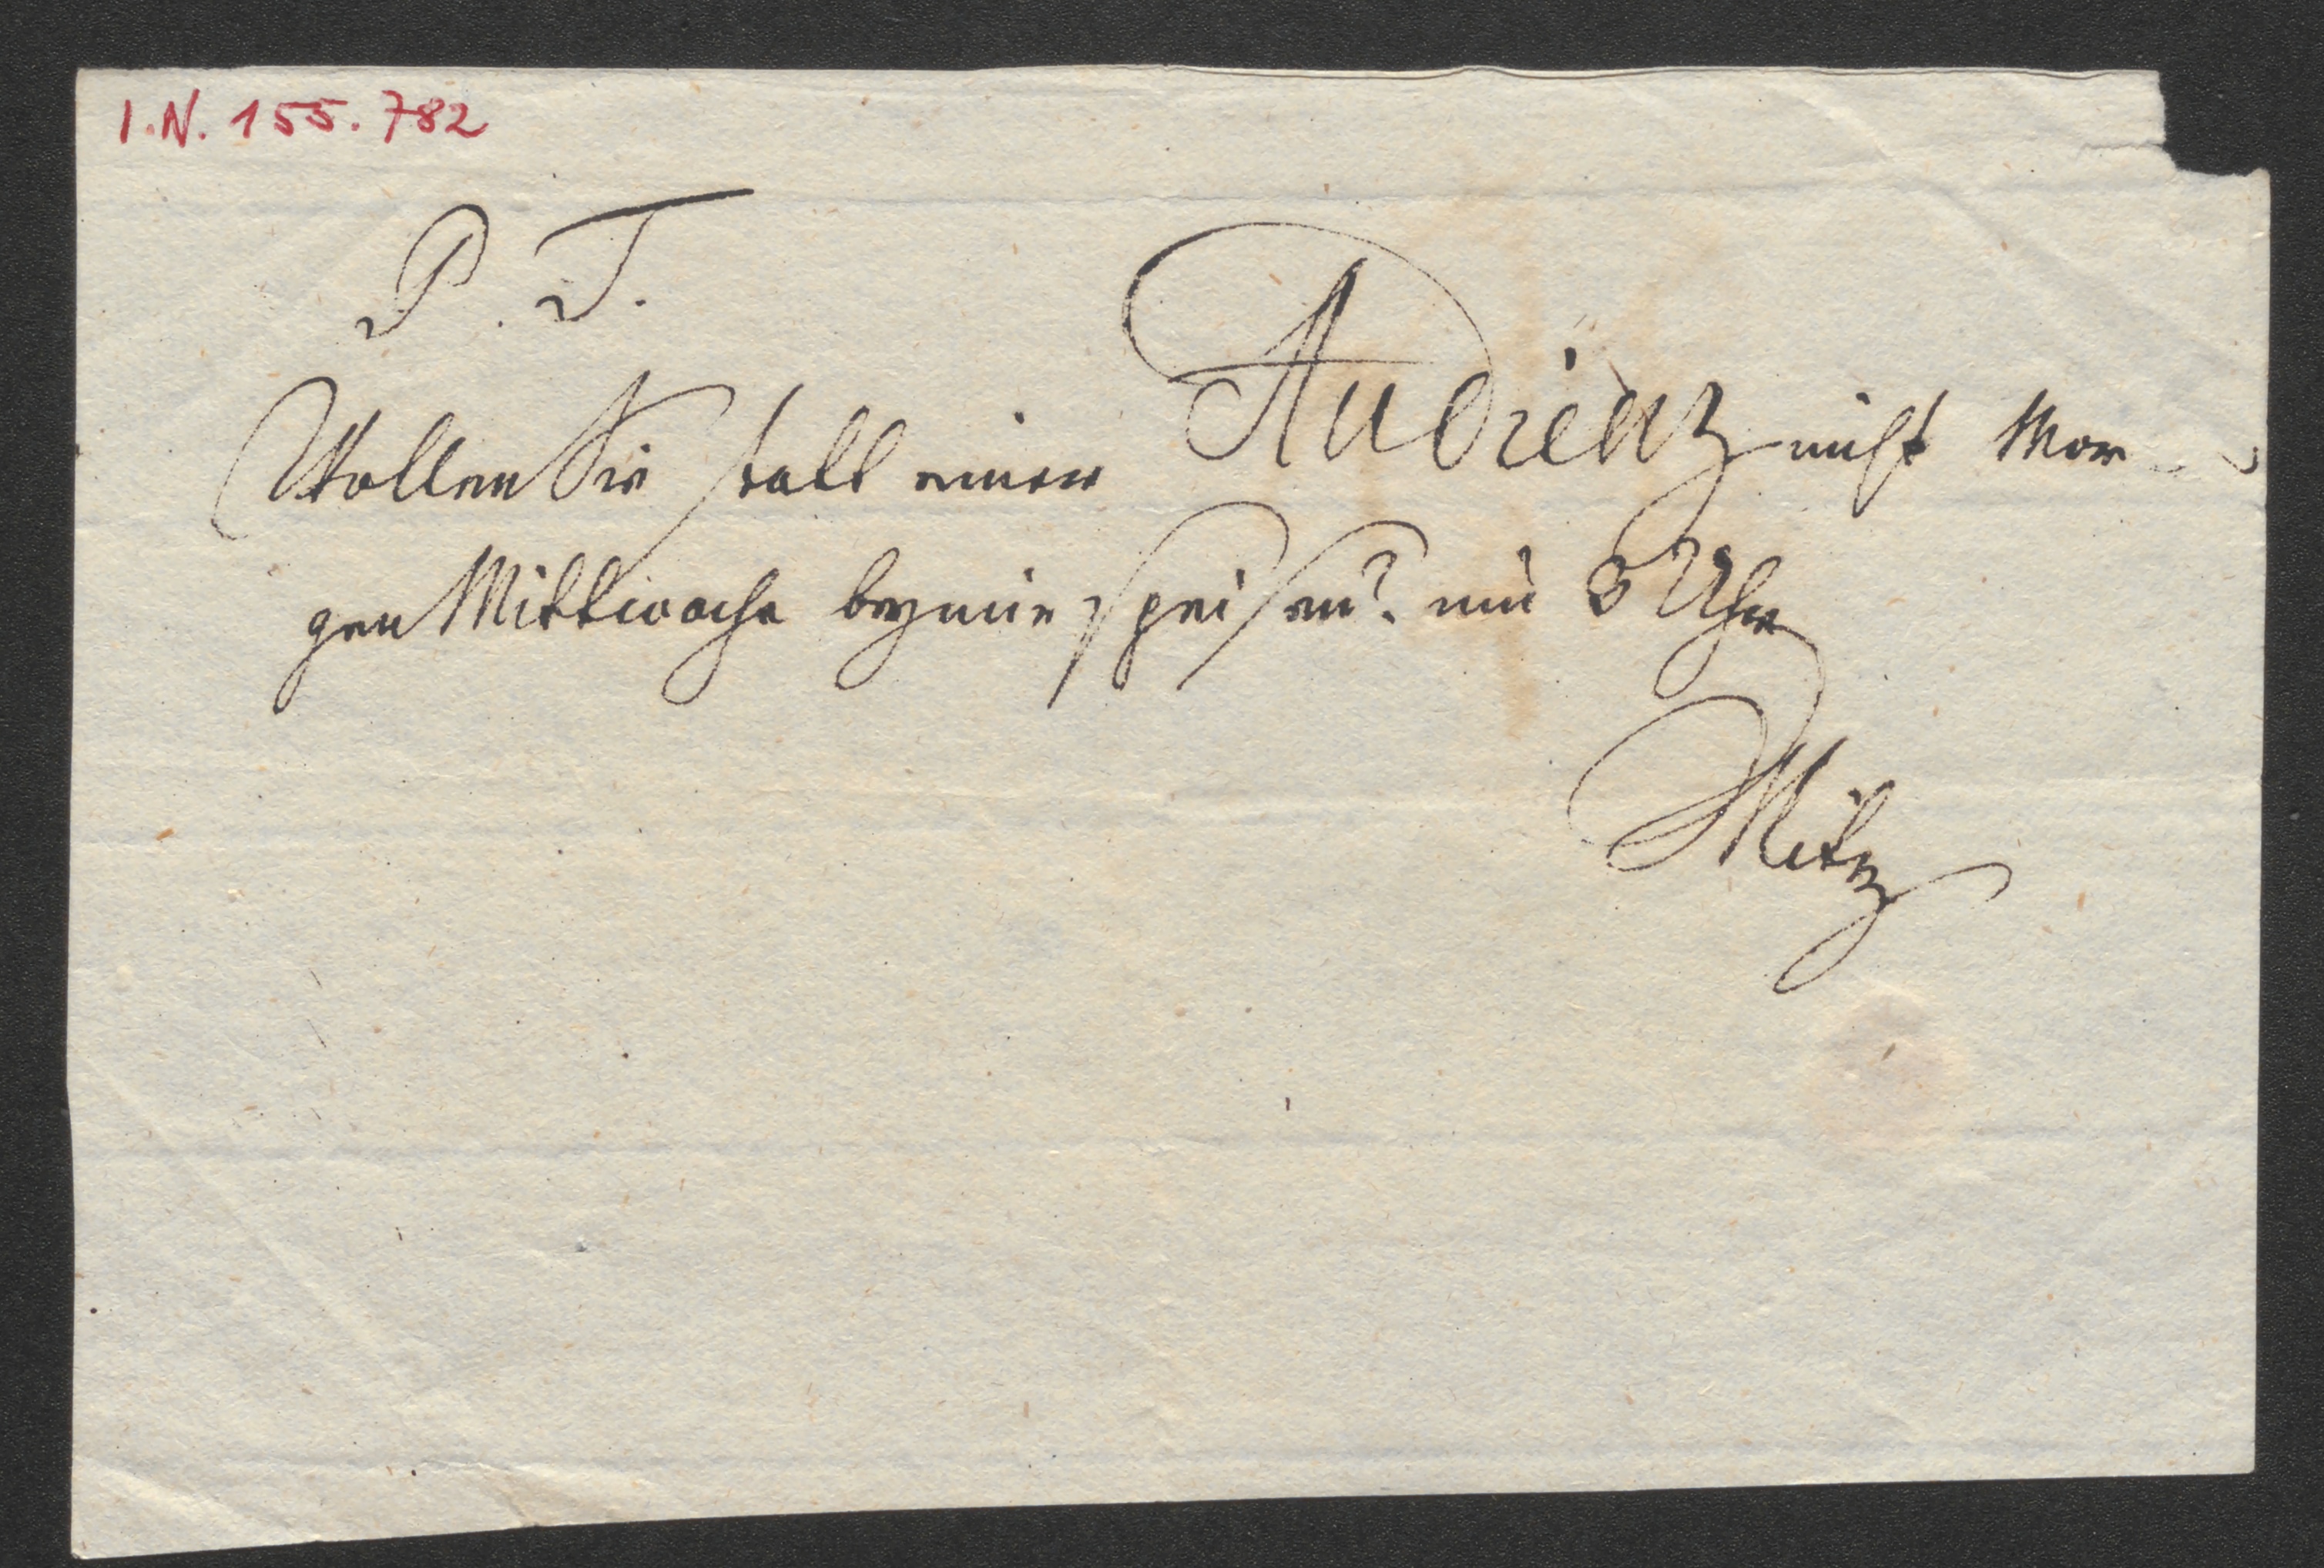 I.N. 155.782
P. T.
Wollen Sie statt einer Audienz nicht Mor-
gen Mittwochs bey mir speisen? um 3 Uhr